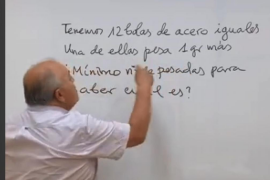 Tenemos 12 bolas de acero iguales
Una de ellas pesa 1 gr más
¿Mínimo de pesadas para
saber es?